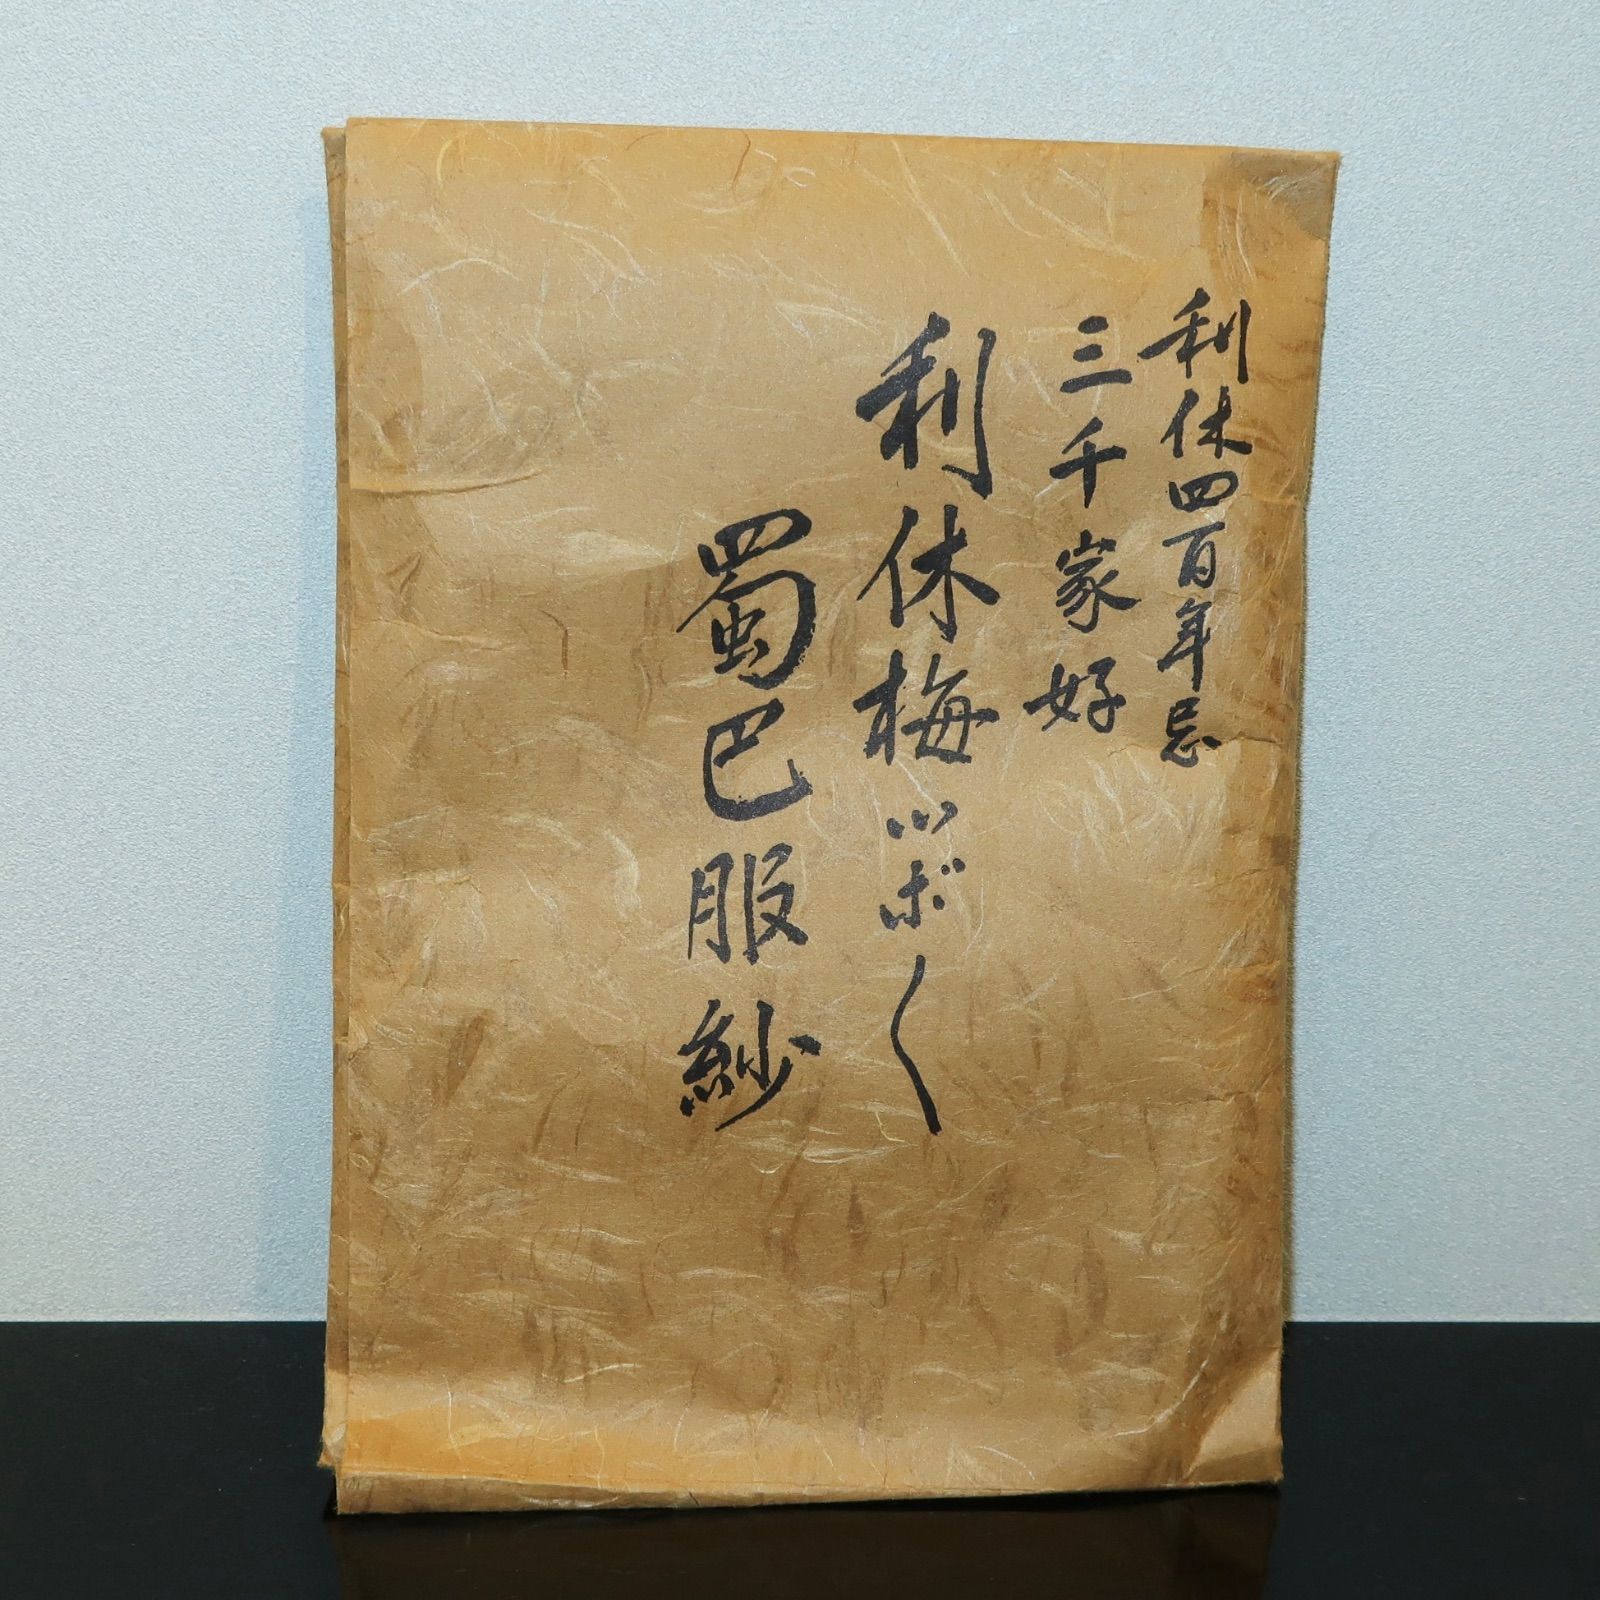 利休四百年忌
三千家好
利休梅ツボ〱
蜀巴服紗